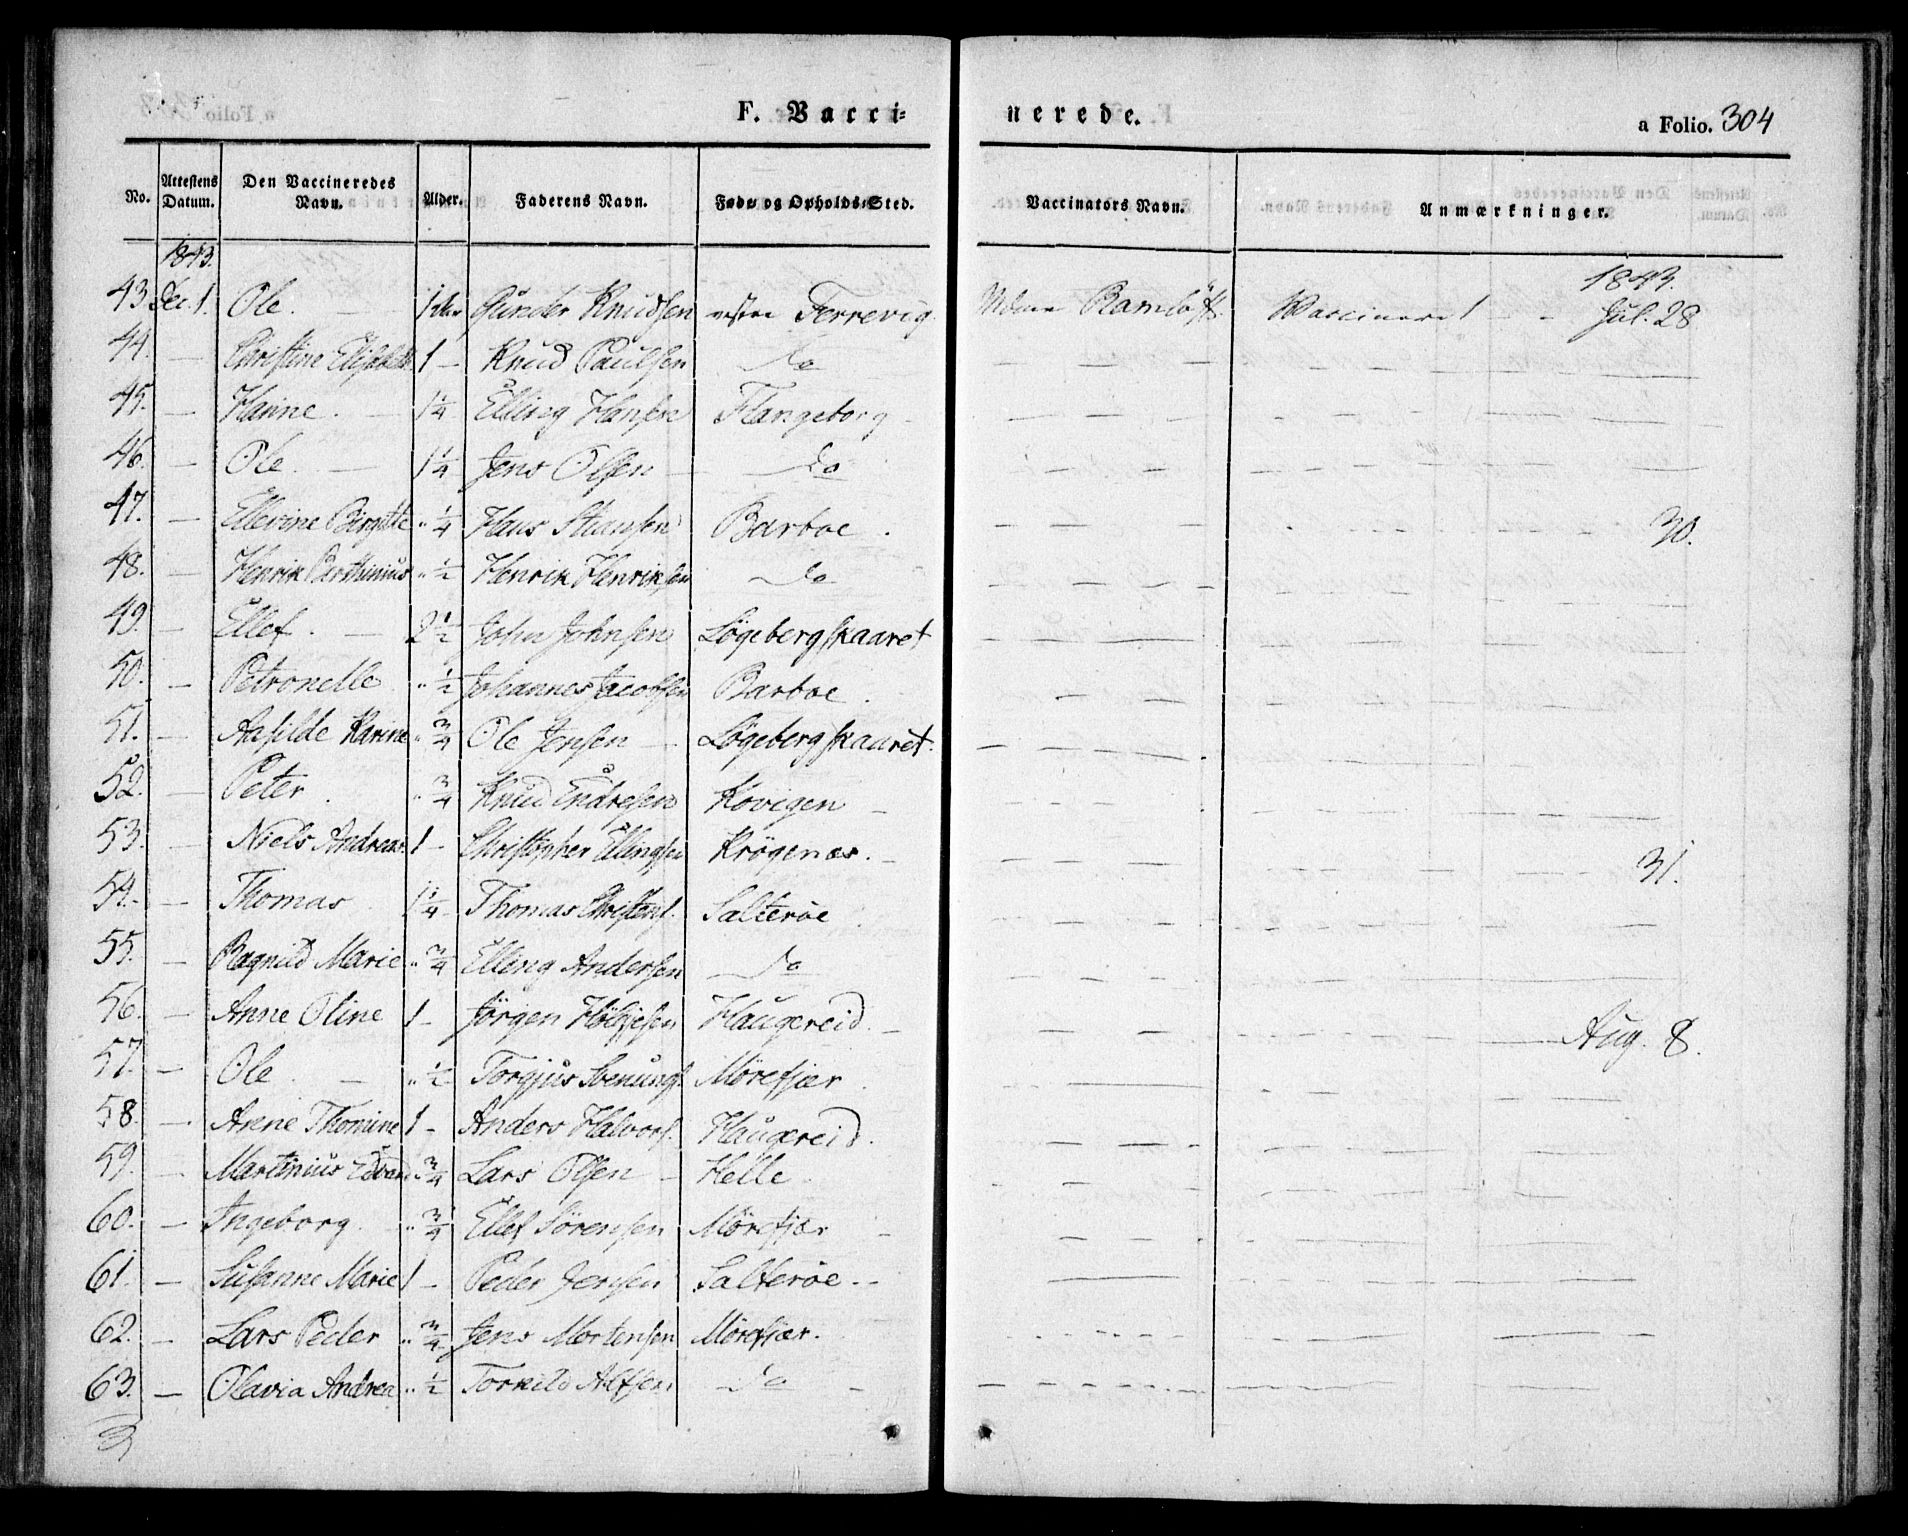 F. Vacci=
nerede.
a Folio. 304
No. Attestens Datum. Den Vaccineredes Navn. Alder. Faderens Navn. Føde- og Opholds-Sted. Vaccinators Navn. Anmærkninger.
1843. 1843.
43. Dec. 1. Ole. Gunder Knudsen Terrevig Vaccineret Jul. 28.
44. — Christine 1 — Knud Paulsen do
45. — Hanne. — 1 1/4 Elling Hansen Flangeborg
46. — Ole. — 1 1/4 Jens Olsen — do
47. — Ellevine Birgitte " 1/4 Hans Barboe. 30.
48. — Henrik " 1/2 Henrik Henriksen do
49. — Ellef. — 2 1/2 John Johnsen Løgebergskaaret
50. — Petronelle " 1/2 Johannes Jacobsen Barboe.
51. — Aasilde Karine " 3/4 Ole Jensen — Løgebergskaaret.
52. — Peter. " 3/4 Knud Endresen Kovigen —
53. — Niels Andreas 1 — Christopher Ellingsen Krøgenæs. — 31.
54. — Thomas 1 1/4 Thomas Christens. Salterøe
55. — Ragnild Marie " 3/4 Elling Andersen do
56. — Anne Oline 1 — Jørgen Haugereid. — Aug. 8.
57. — Ole. — " 1/2 Torgjus Svenungs. Mørefjær.
58. — Anne Thomine 1 — Anders Halvors. Haugereid.
59. — Martinius Edvard " 3/4 Lars Olsen — Helle.
60. — Ingeborg. " 3/4 Ellef Sørensen Mørefjær —
61. — Susanne Marie 1 — Peder Jensen Salterøe. —
62. — Lars Peder " 3/4 Jens Mortensen Mørefjær.
63. — Olavia Andrea " 1/2 Torkild Alfsen do —